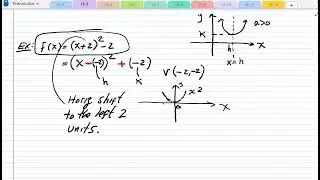 Precalculus
Ex: f(x) = (x+2)² - 2
= (x - (-2))² + (-2)
h
k
Horiz shift
to the left 2
units.
V(-2,-2)
y
x²
x
y
k
a>0
h
x
x=h